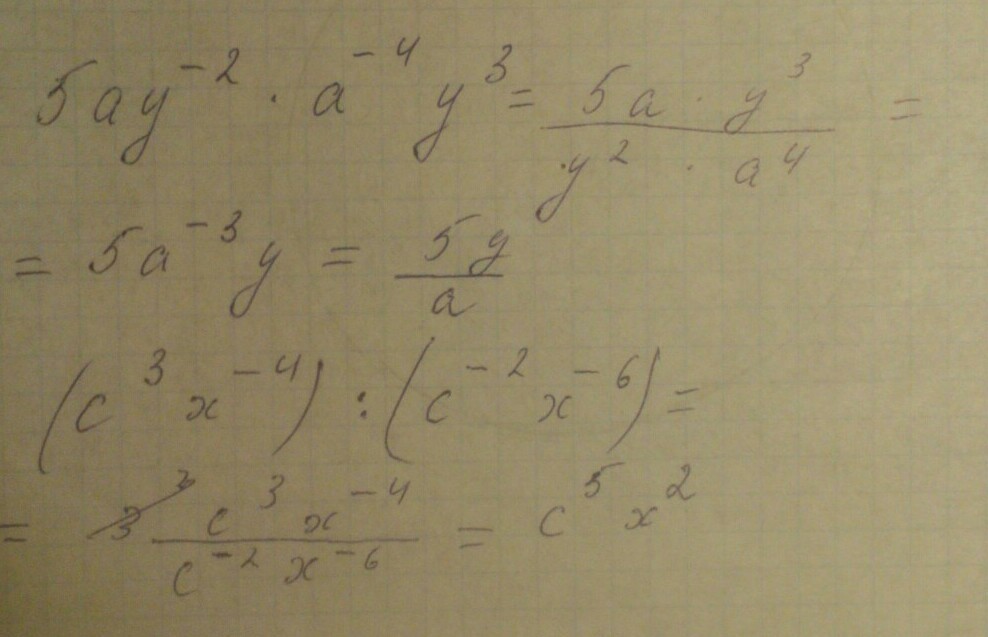 5ay⁻² · a⁻⁴ y³ = (5a · y³)/(y² · a⁴) =
= 5a⁻³y = 5y/a
(c³ x⁻⁴) : (c⁻² x⁻⁶) =
= (c³ x⁻⁴)/(c⁻² x⁻⁶) = c⁵ x²